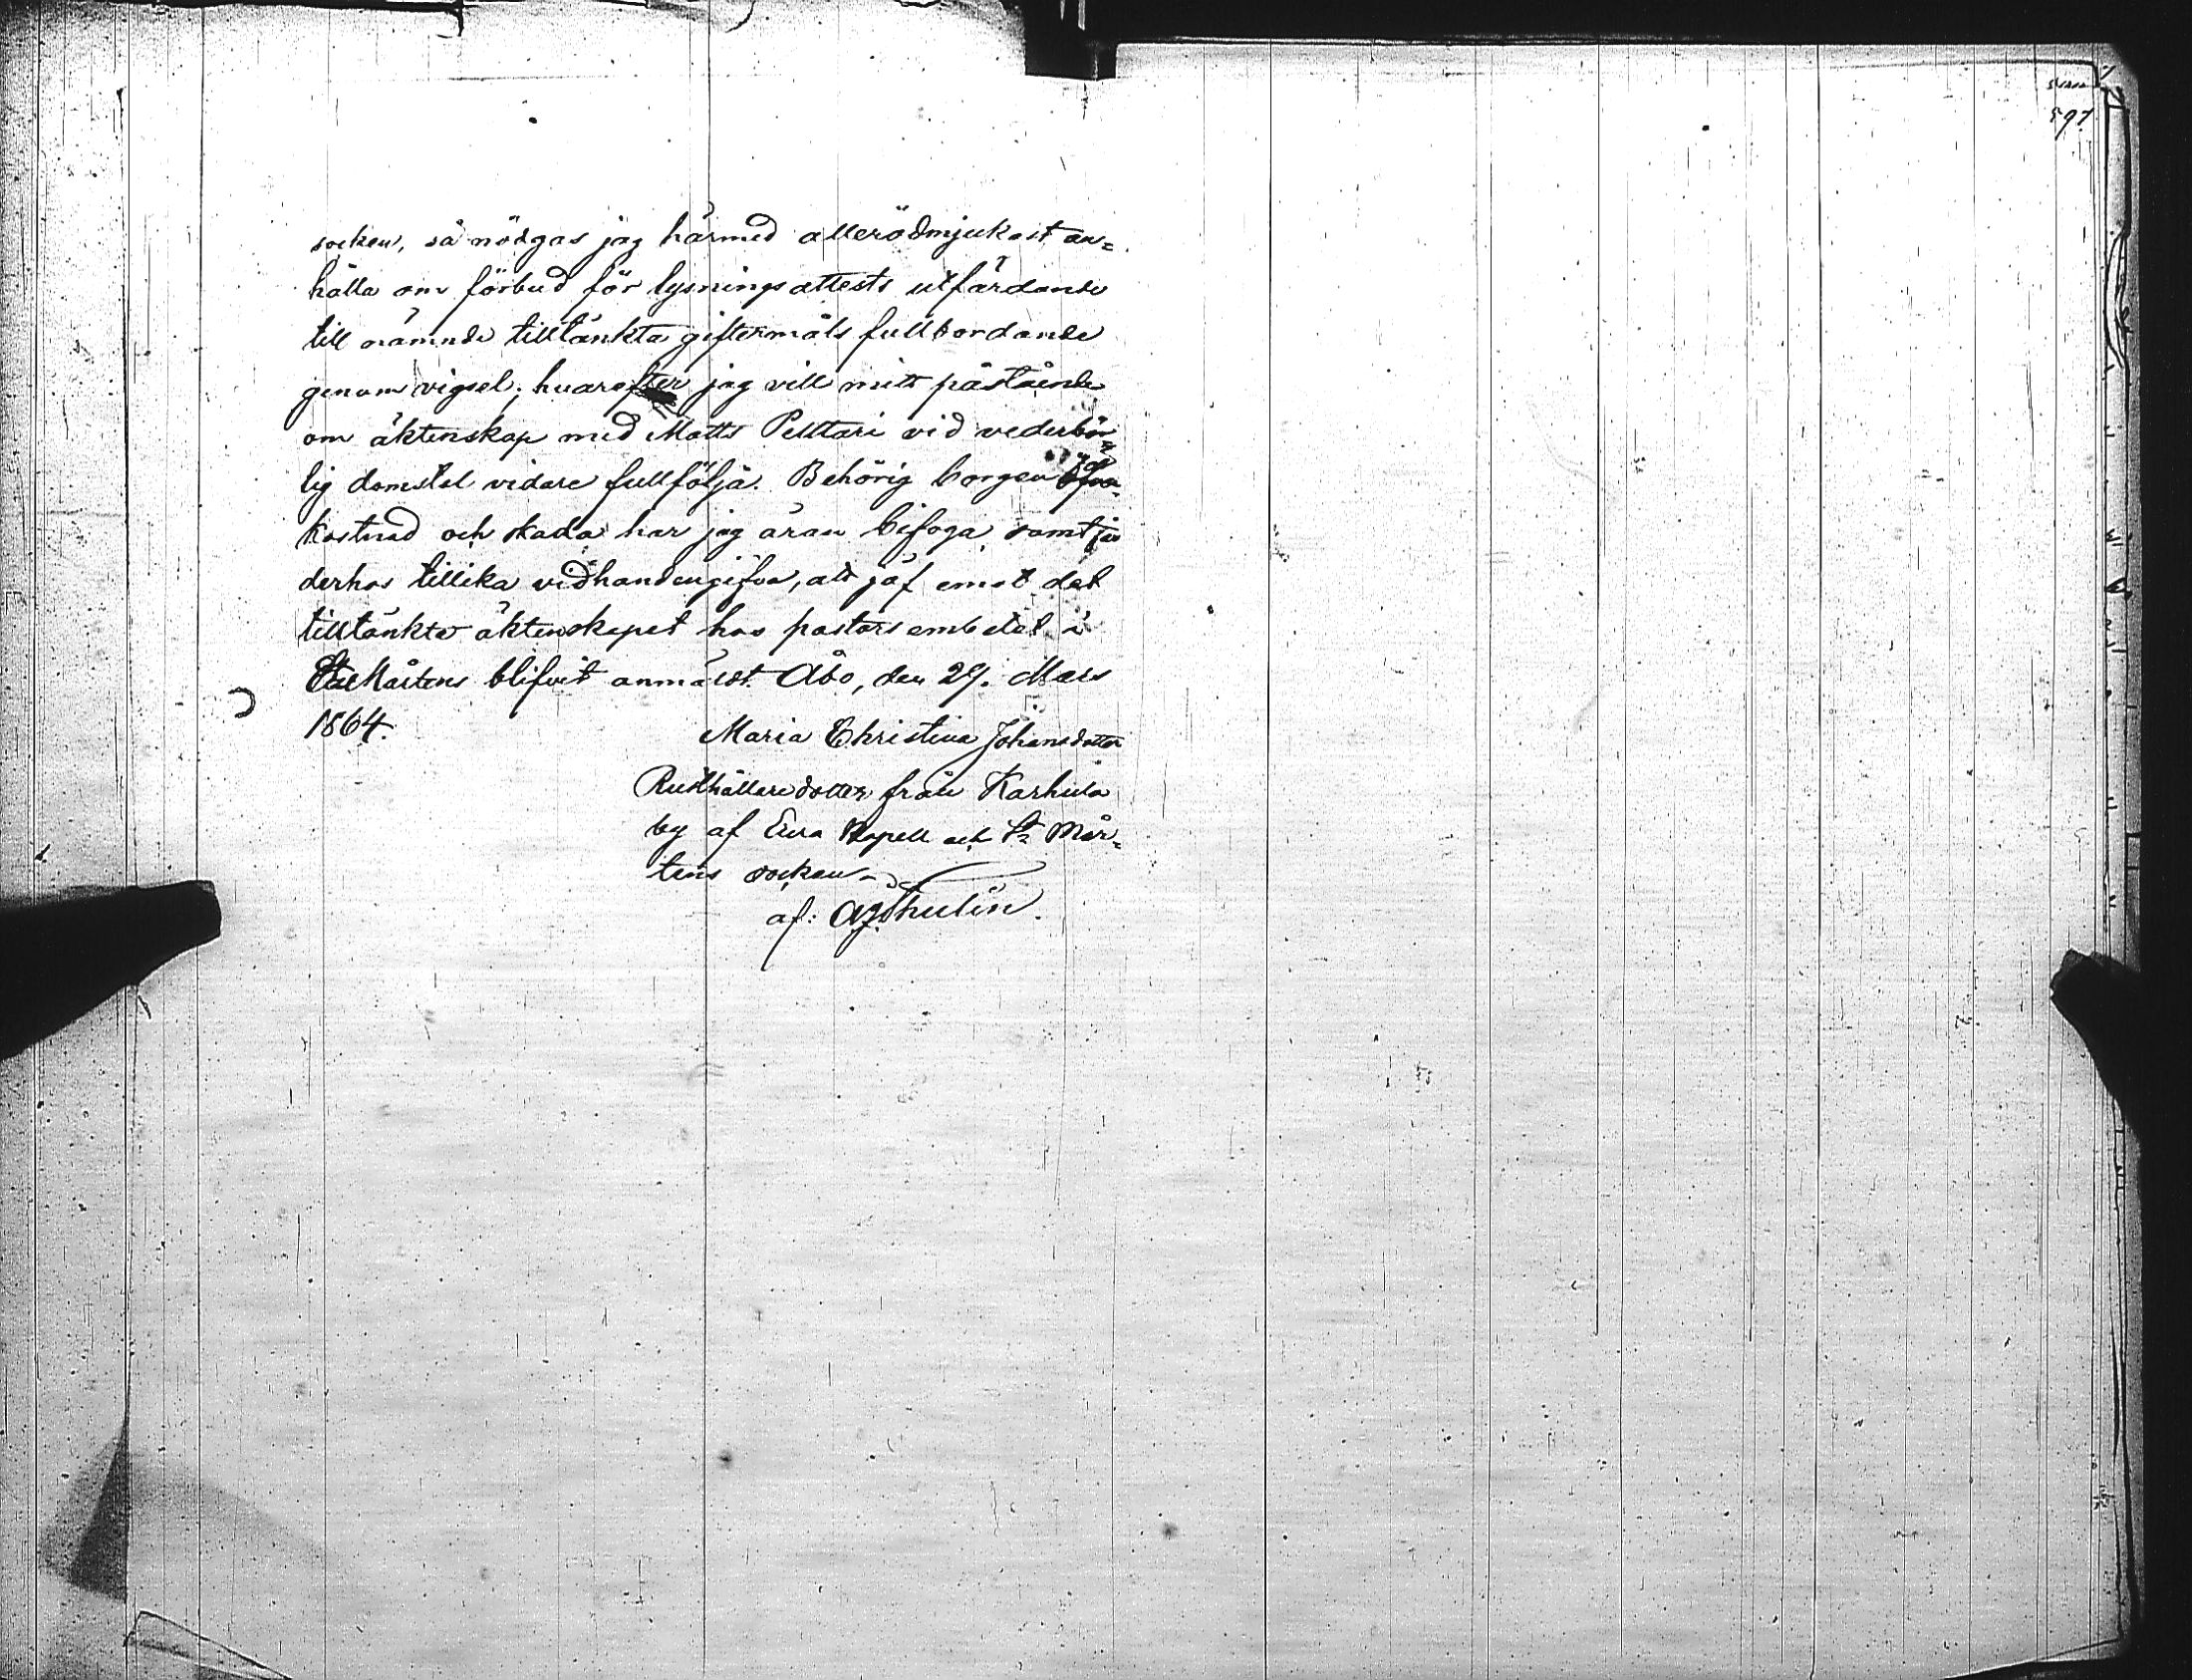 597.
socken, så nödgas jag härmed allerödmjukast an=
hålla om förbud för lysningsattests utfärdande
till nämnde tilltänkta giftermåls fullbordande
genom vigsel; hvarefter jag vill mitt påstående
om äktenskap med Matts Pelttari vid vederbör=
lig domstol vidare fullfölja. Behörig borgen för
kostnad och skada har jag äran bifoga, samt
derhos tillika vidhandengifva, att jäf emot det
tilltänkta äktenskapet hos pastorsembetet i
S:t Mårtens blifvit anmäldt. Åbo, den 29. Mars
1864.
Maria Christina Johansdotter
Rusthållaredotter från Karhula
by af Aura Kapell och S:t Mår=
tens socken
af: A.J. Thulin.